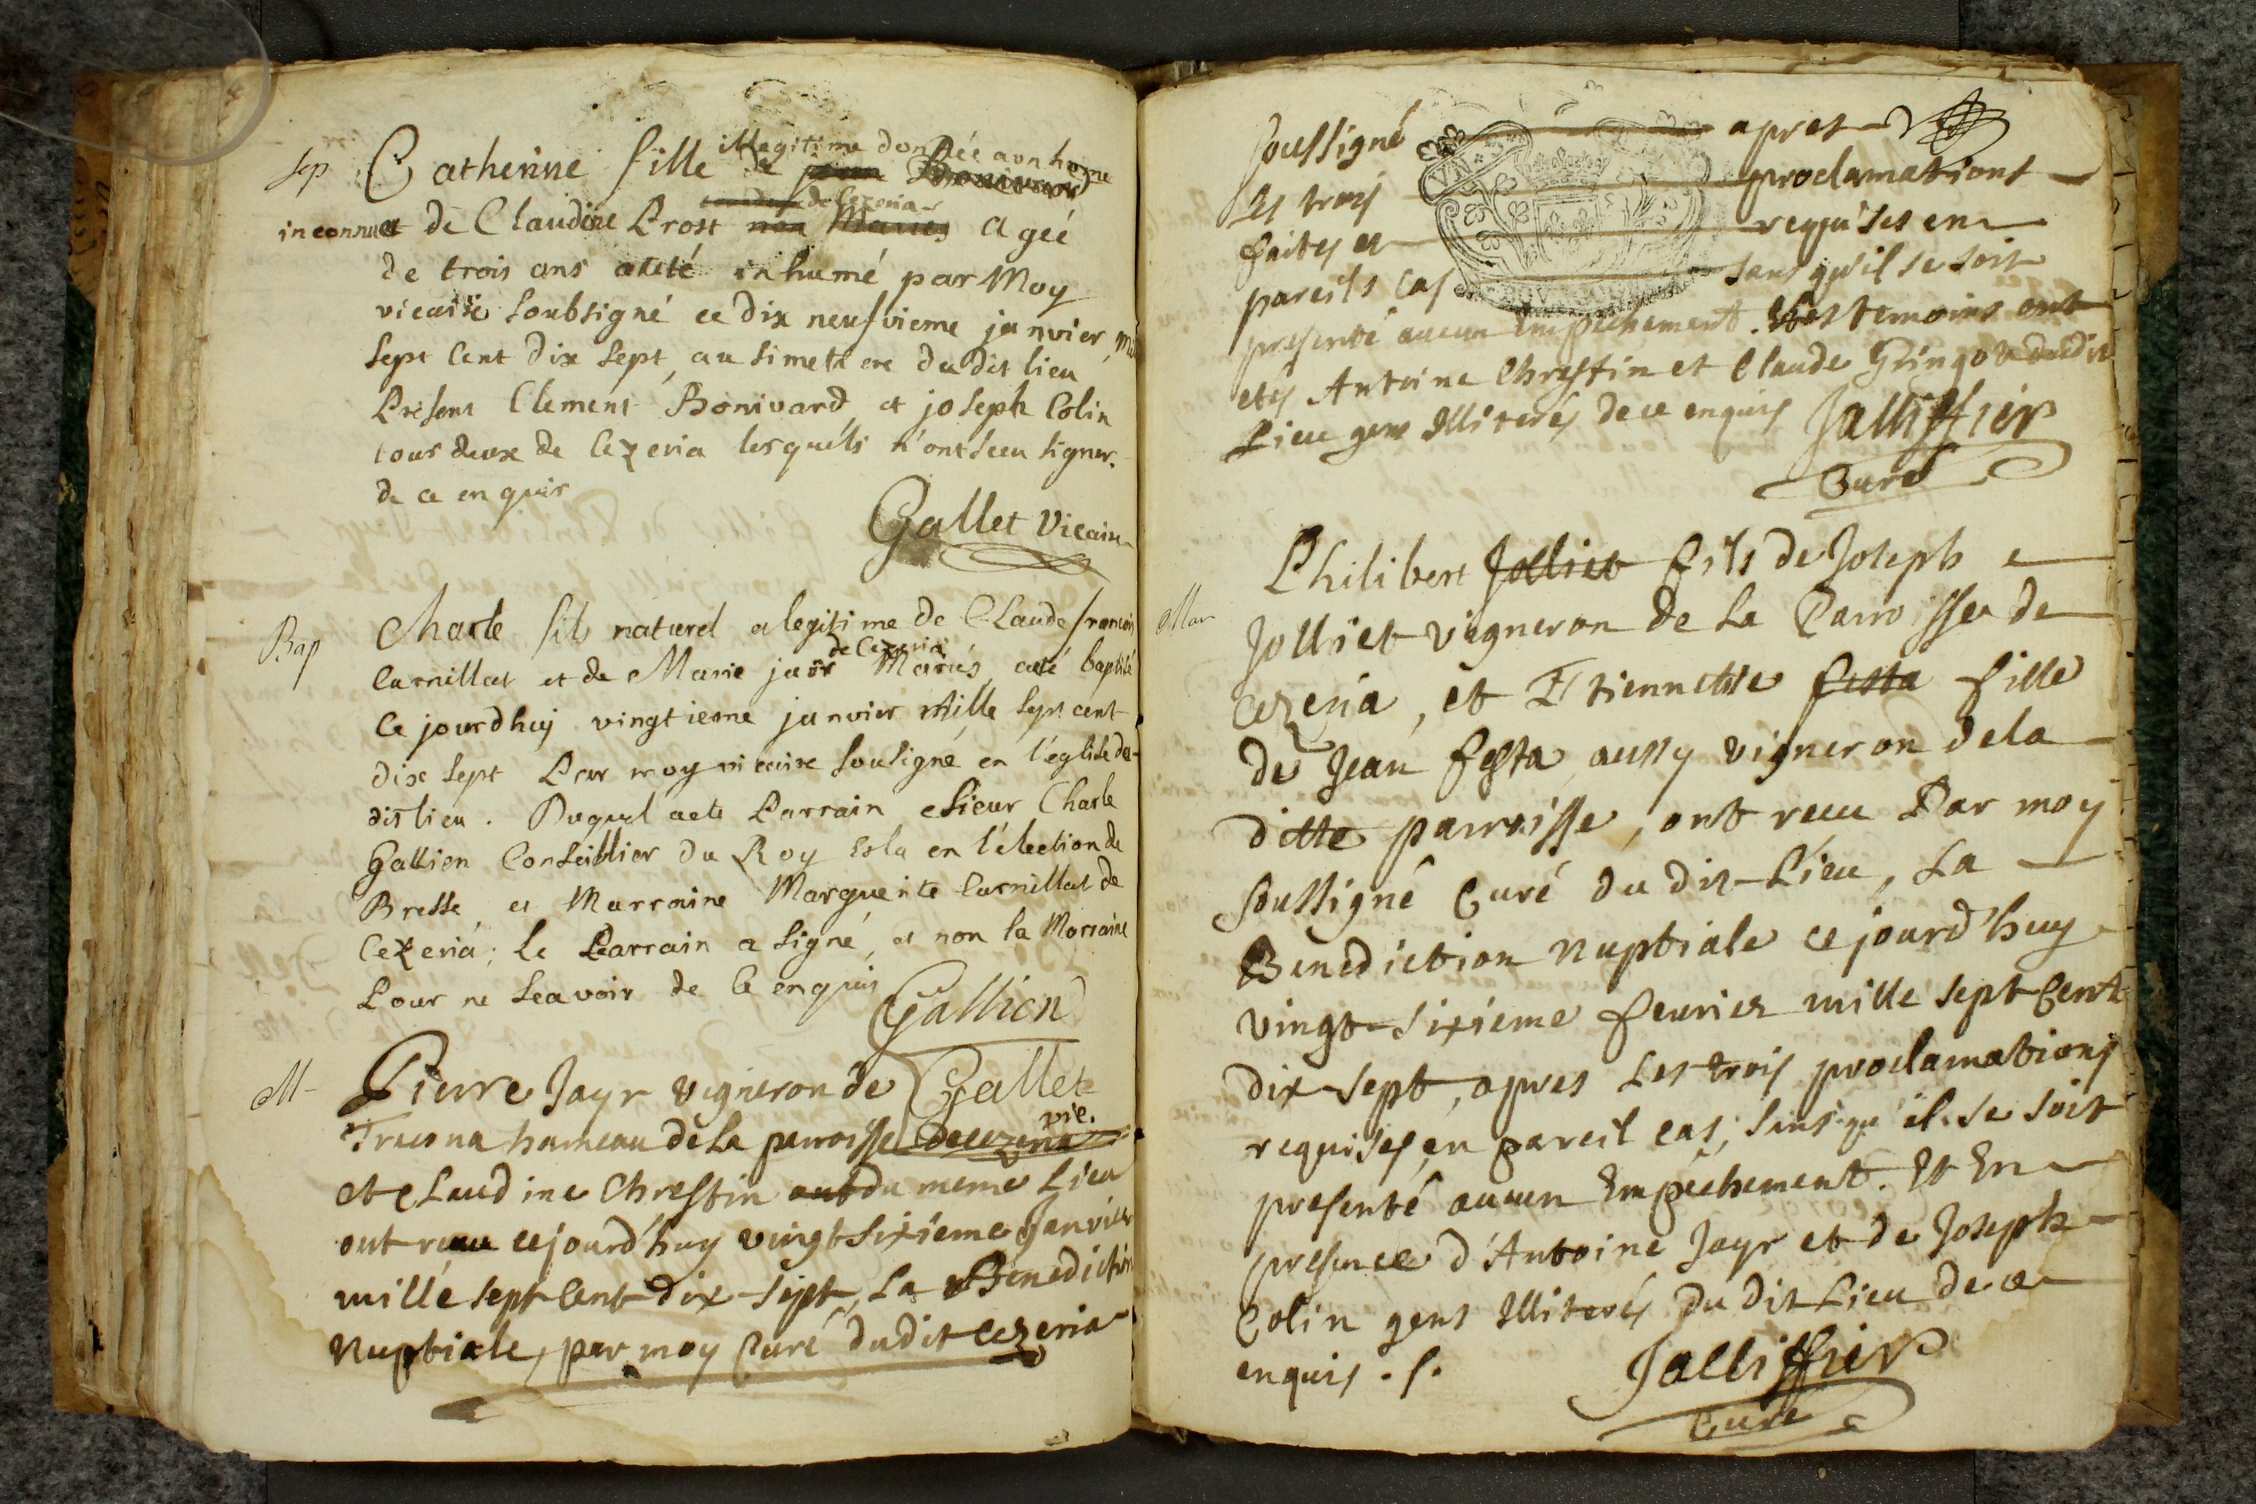 illegitime donnée a un home
Sep Catherine fille de Bonivard
de Cezeria
inconnu et de Claudine Prost non Mariés agéé
de trois ans a eté inhumé par Moy
vicaire soubsigné ce dix neufvieme janvier mil
sept cent dix sept, au simettere du dit lieu
Present Clement Bonivard et joseph Colin
tous deux de Cezeria lesquels n'ont sceu signer.
de ce enquis
Gallet vicaire
Bap Charle fils naturel et legitime de Claude francois
de Cezeria
Carnillat et de Marie jaïr Mariés, a eté baptisé
Ce jourdhuy vingtieme janvier mille sept cent
dix sept Par moy vicaire sousigné en l'eglise du
dit lieu. Duquel a eté Parrain Sieur Charle
Gallien Conseillier du Roy Eslu en l'election de
Bresse, et Marraine Marguerite Carnillat de
Cezeria; le Parrain a signé, et non la Marraine
Pour ne sçavoir de ce enquis
Gallien
M- Pierre Jayr vigneron de
Gallet
vic.
hameau de la parroisse de cezeria
et Claudine Chrestin du meme Lieu
ont receu cejourd'huy vingt sixieme Janvier
mille sept Cent dix-sept, La Benediction
Nuptiale, par moy Curé dudit Cezeria
soussigné apres
Les trois proclamations
faites et requises en
pareils Cas sans qu'il se soit
presenté aucun Empechement. Les temoins ont
etes Antoine Chrestin et Claude Gringoz dudit
Lieu gens Illiterés de ce enquis Jalliffier
Curé
Mar Philibert Jolliet fils de Joseph
Jolliet vigneron de La Parroisse de
Cezeria, et Etiennette festa fille
de Jean festa, aussy vigneron de la
ditte parroisse, ont receu Par moy
soussigné Curé du dit Lieu, La
Benediction Nuptiale ce jourd'huy
vingt-sixieme fevrier mille sept Cent
dix-sept, apres Les trois proclamations
requises en pareil cas, sans qu'il se soit
presenté aucun Empechement. Et En
presence d'Antoine Jayr et de Joseph
Colin gens Illiterés du dit Lieu de ce
enquis . s. Jalliffier
Curé